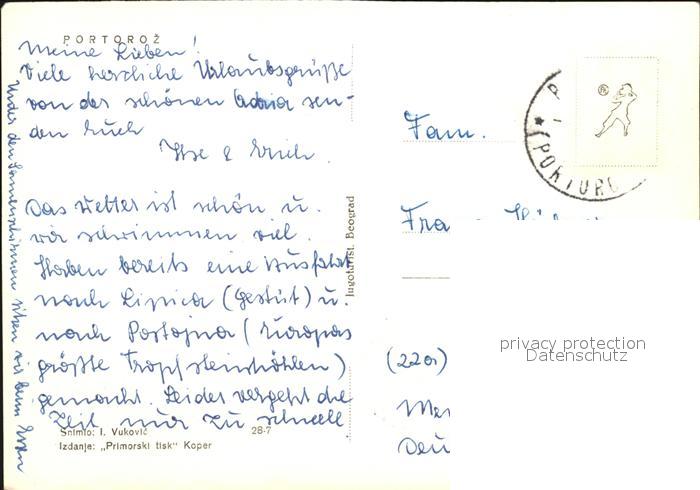 PORTOROŽ
Meine Lieben!
Viele herzliche Urlaubsgrüße
von der schönen Adria sen-
den Euch
Ilse & Erich.
Das Wetter ist schön u.
wir schwimmen viel.
Haben bereits eine Ausfahrt
nach Lipica (Gestüt) u.
nach Postojna (Europas
größte Tropfsteinhöhlen)
gemacht. Leider vergeht die
Zeit nur zu schnell.
Unter den Sonnenschirmen sitzen wir beim Essen
Snimio: I. Vuković 28-7
Izdanje: „Primorski tisk“ Koper
Jugoturist, Beograd
PORTORO
Fam.
Fra
(220)
Deu
privacy protection
Datenschutz